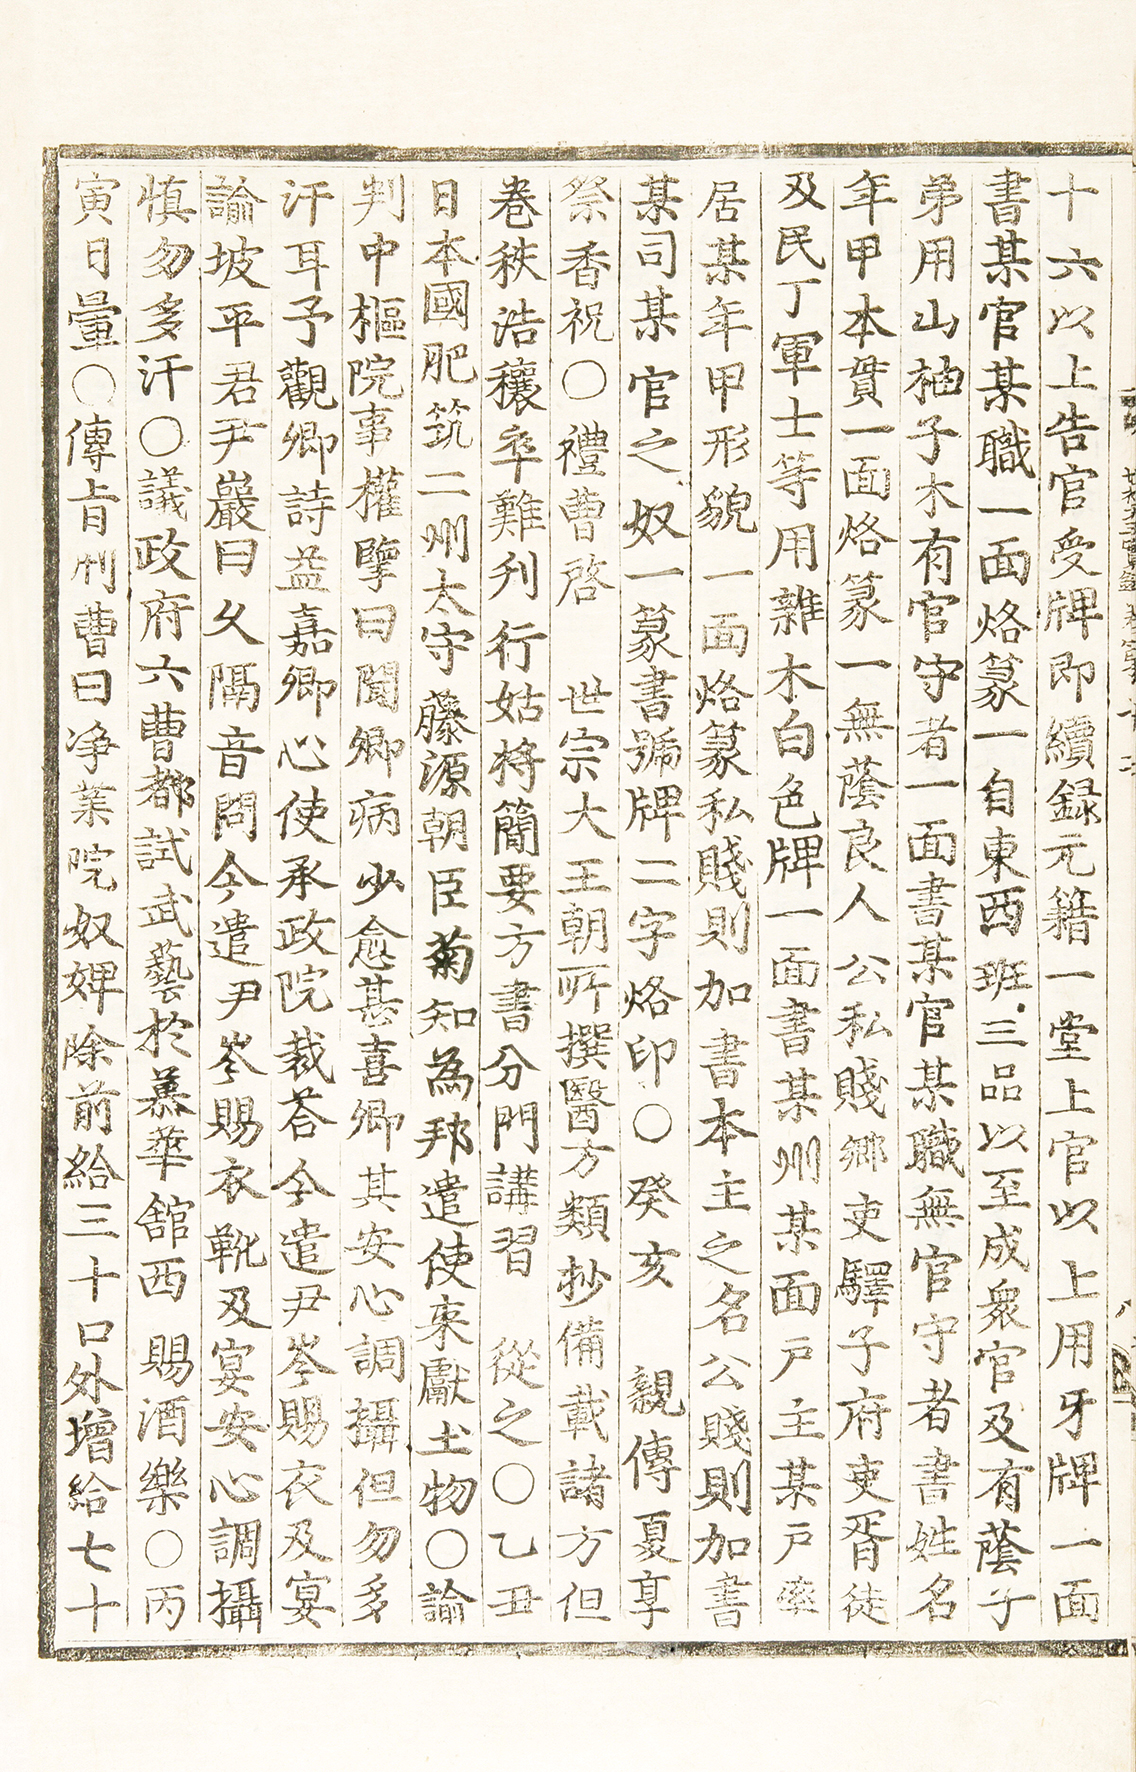 十六以上告官受牌即續録元籍一堂上官以上用牙牌一面
書某官某職一面烙篆一自東西班三品以至成衆官及有蔭子
弟用山柚子木有官守者一面書某官某職無官守者書姓名
年甲本貫一面烙篆一無蔭良人公私賤鄕吏驛子府吏胥徒
及民丁軍士等用雜木白色牌一面書某州某面戶主某戶率
居某年甲形貌一面烙篆私賤則加書本主之名公賤則加書
某司某官之奴一篆書號牌二字烙印○癸亥 親傳夏享
祭香祝○禮曹啓 世宗大王朝所撰醫方類抄備載諸方但
卷秩浩穰卒難刋行姑將簡要方書分門講習 從之○乙丑
日本國肥筑二州太守藤源朝臣菊知爲邦遣使來獻土物○諭
判中樞院事權擥曰聞卿病少愈甚喜卿其安心調攝但勿多
汗耳予觀卿詩益嘉卿心使承政院裁答今遣尹岑賜衣及宴
諭坡平君尹巖曰久隔音問今遣尹岑賜衣靴及宴安心調攝
愼勿多汗○議政府六曹都試武藝於慕華館西 賜酒樂○丙
寅日暈○傳旨刑曹曰净業院奴婢除前給三十口外增給七十